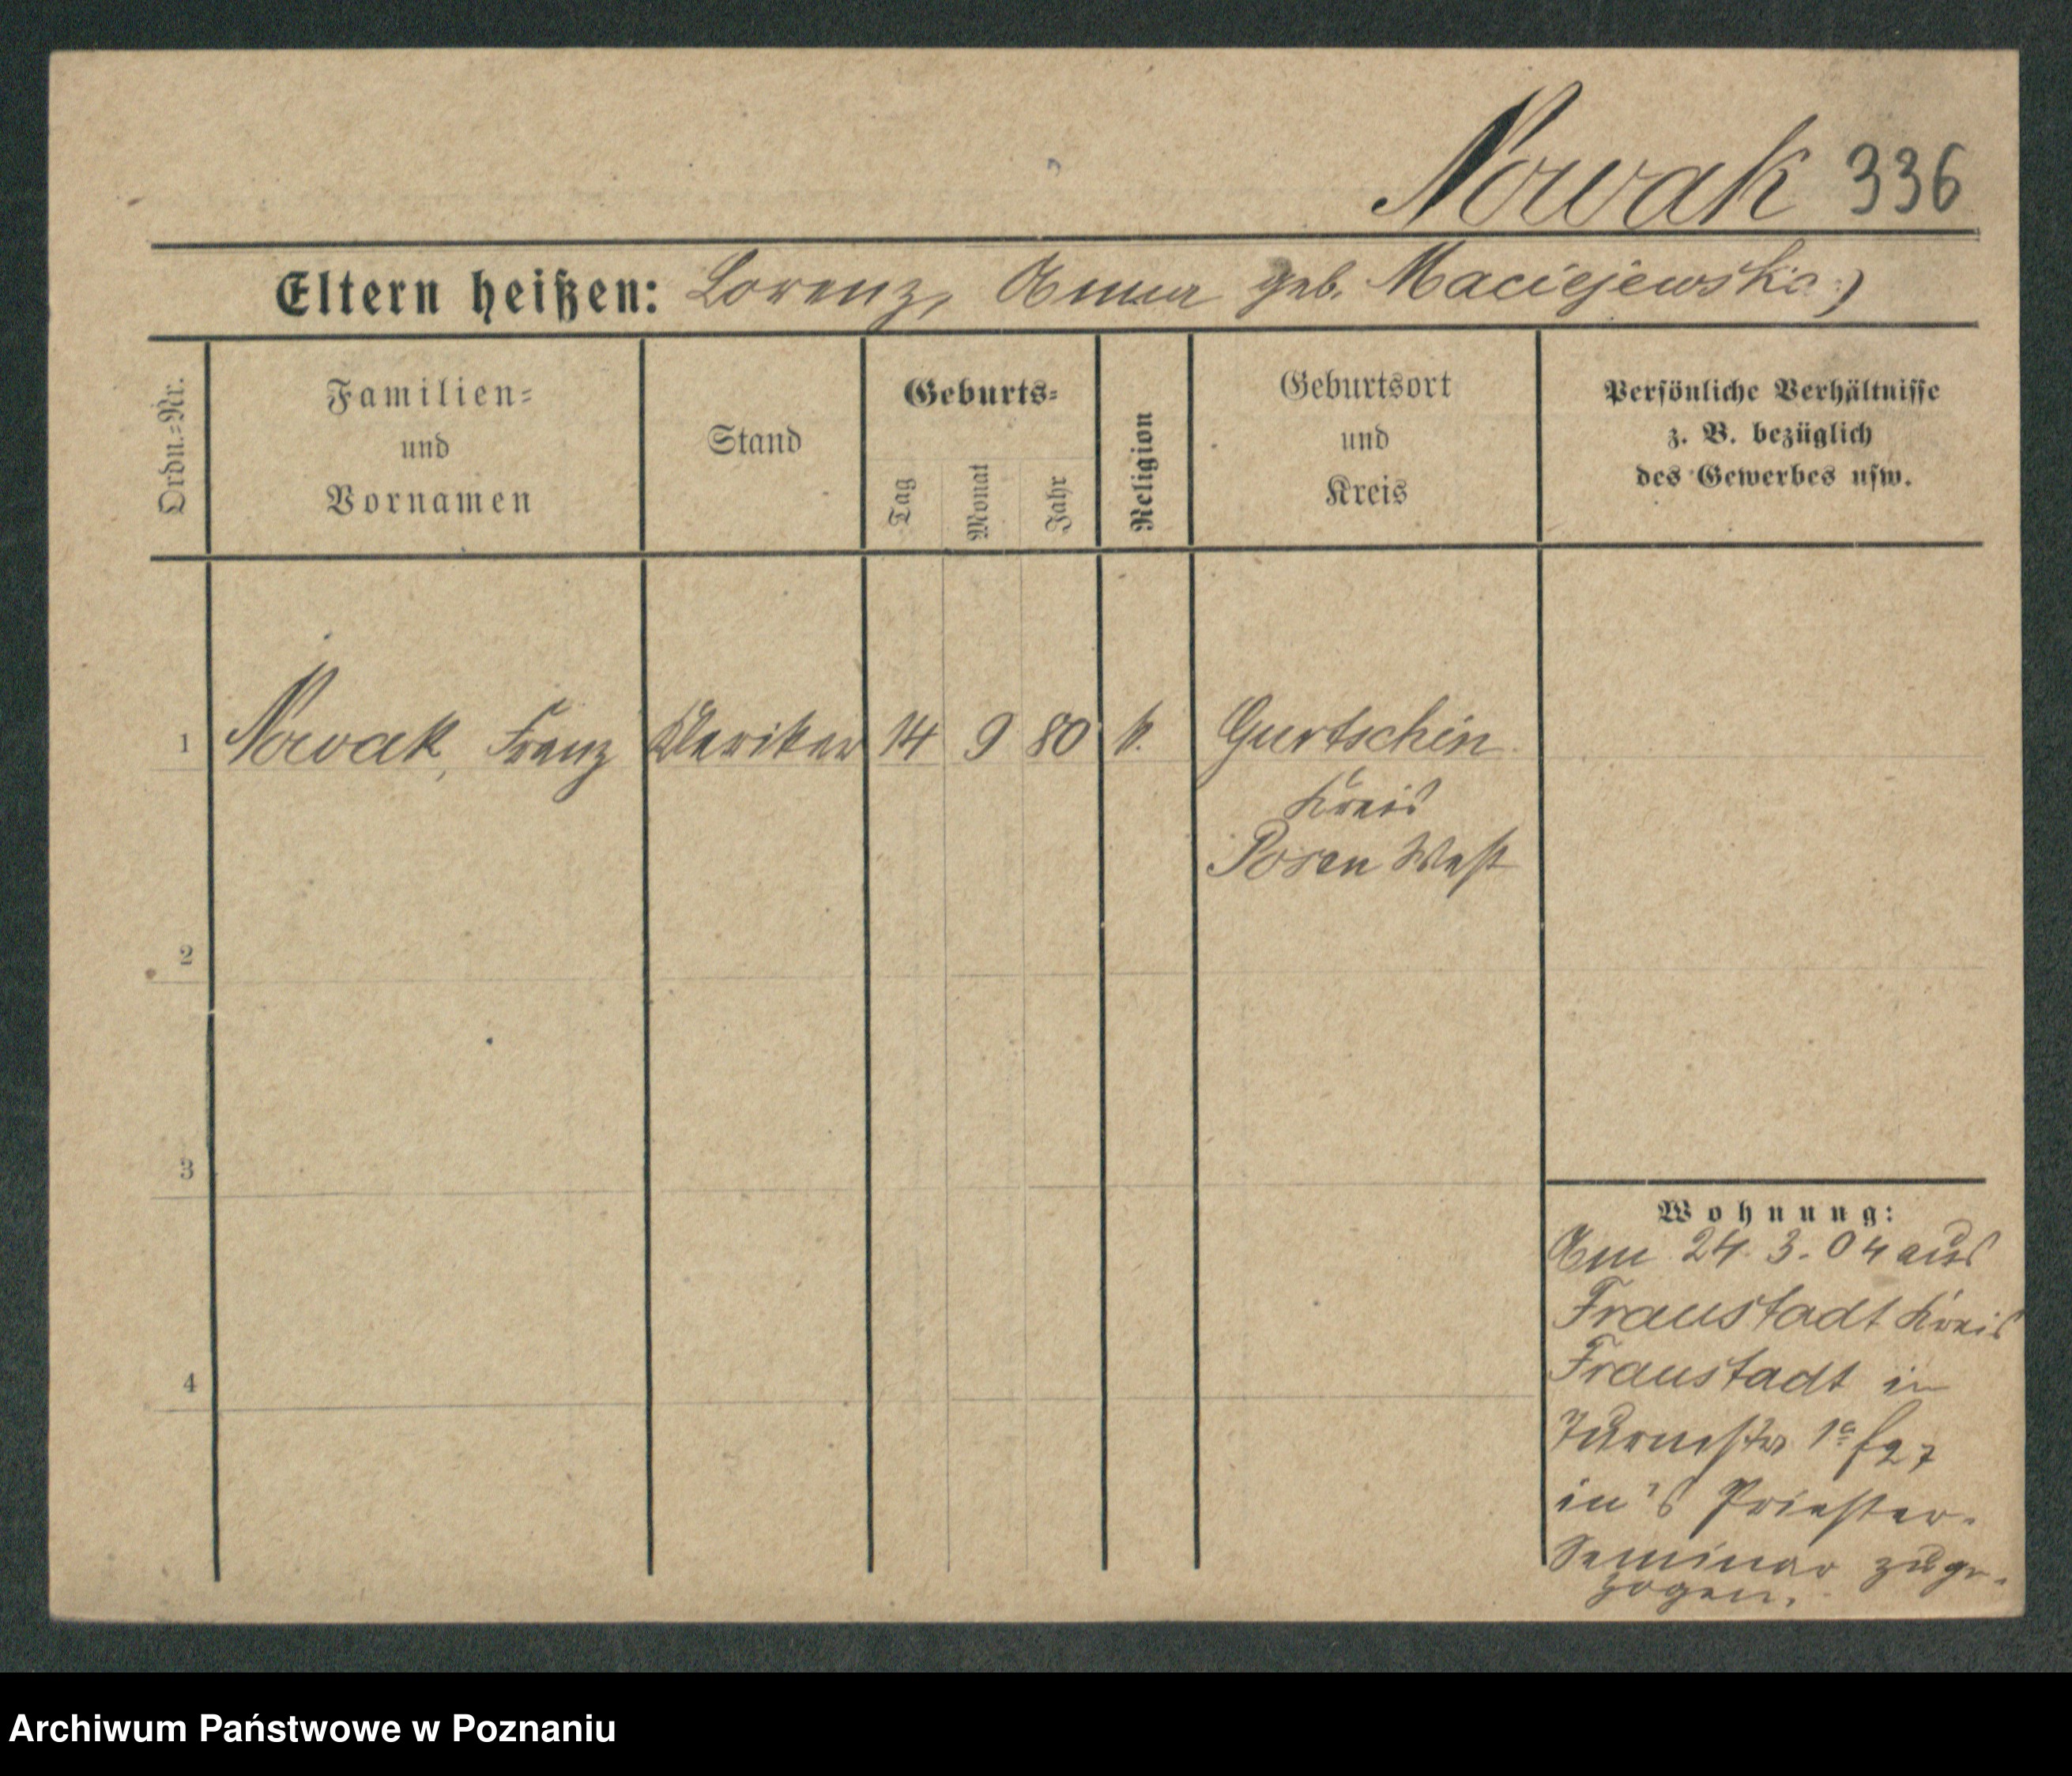 Nowak 336
Eltern heißen: Lorenz, Anna geb. Maciejewska)
Ordn.=Nr.
Familien=
und
Vornamen
Stand
Geburts=
Tag
Monat
Jahr
Religion
Geburtsort
und
Kreis
Persönliche Verhältnisse
z. B. bezüglich
des Gewerbes usw.
1 Nowak, Franz Kleriker 14 9 80 k. Gurtschin
Kreis
Posen West
2
3
4
Wohnung:
Am 24. 3. 04 aus
Fraustadt Kreis
Fraustadt in
in's Priester-
Seminar zuge-
zogen.
Archiwum Państwowe w Poznaniu